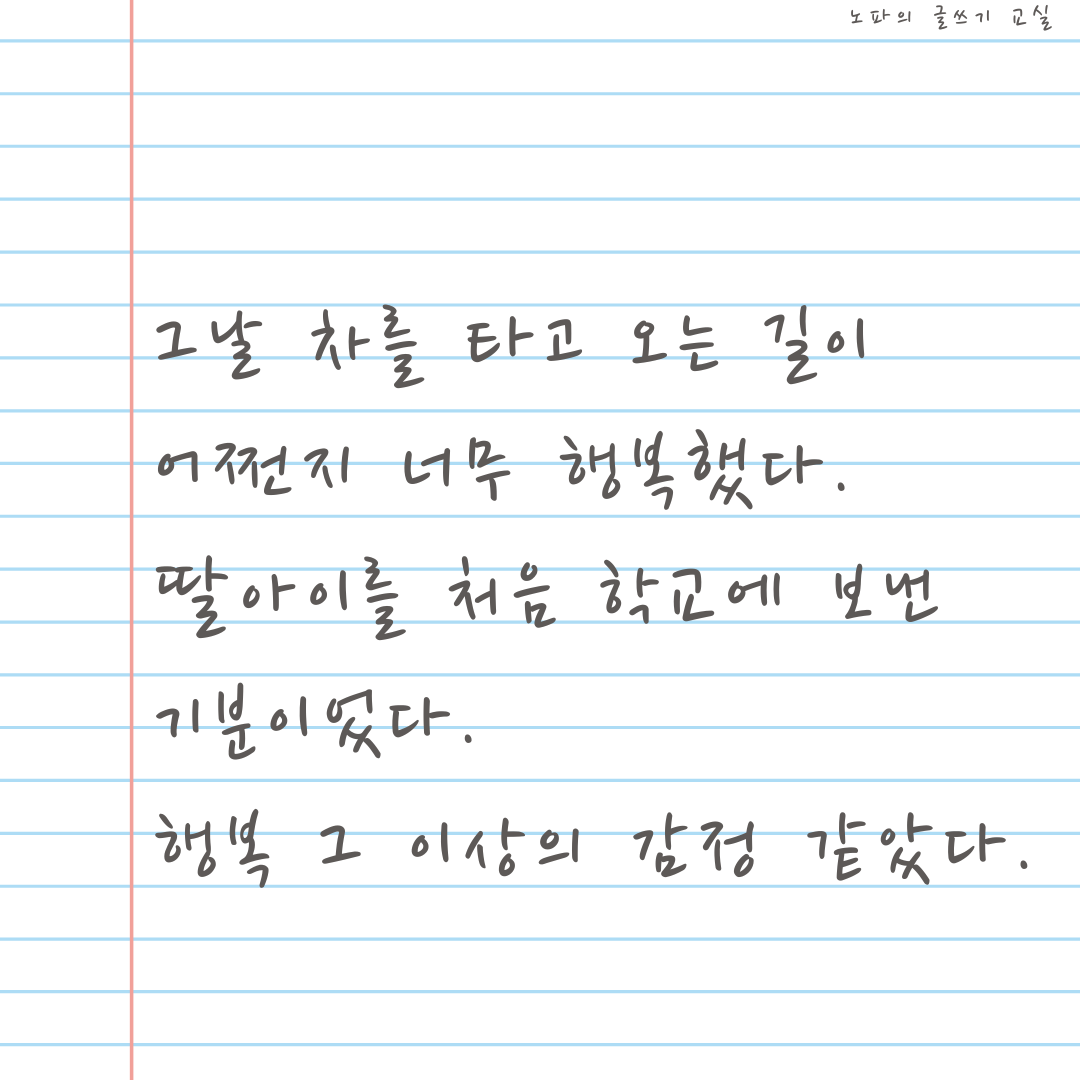 노파의 글쓰기 교실
그날 차를 타고 오는 길이
어쩐지 너무 행복했다.
딸아이를 처음 학교에 보낸
기분이었다.
행복 그 이상의 감정 같았다.